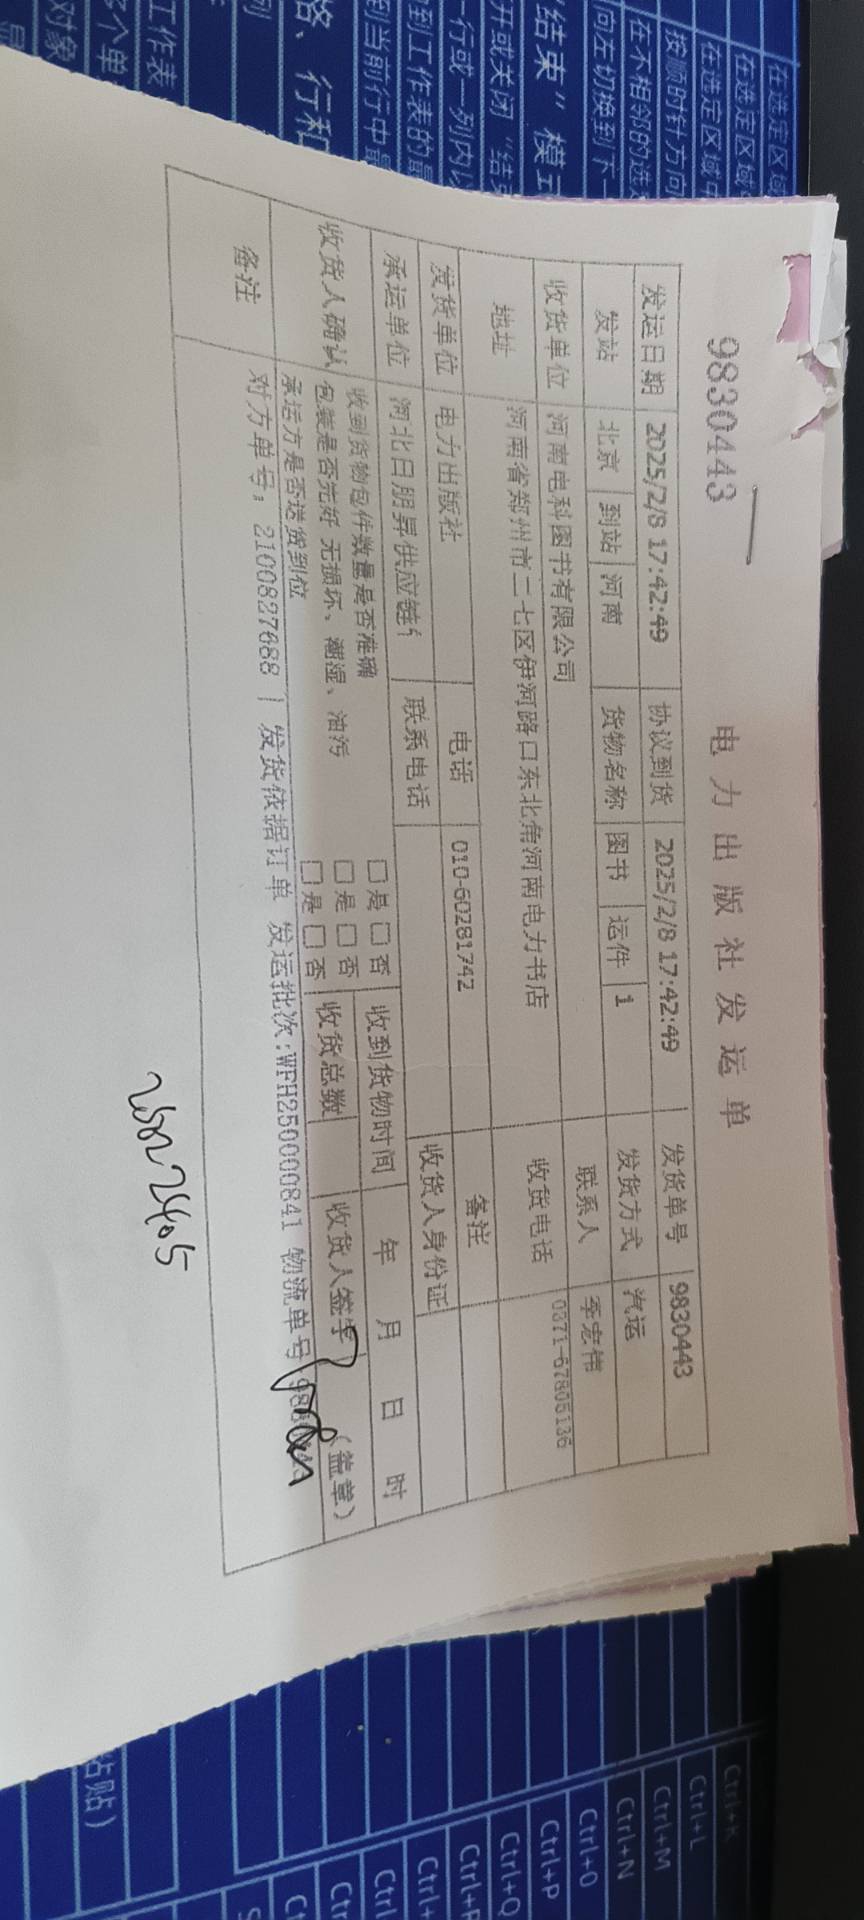 9830443
电力出版社发运单
发运日期 2025/2/8 17:42:49 协议到货 2025/2/8 17:42:49 发货单号 9830443
发站 北京 到站 河南 货物名称 图书 运件 1 发货方式 汽运
收货单位 河南电科图书有限公司 联系人 李宏伟
地址 河南省郑州市二七区伊河路口东北角河南电力书店 收货电话 0371-67805136
发货单位 电力出版社 电话 010-60281742 备注
承运单位 河北日朋昇供应链 联系电话 收货人身份证
收货人确认 收到货物包件数量是否准确 □是□否 收到货物时间 年 月 日 时
包装是否完好 无损坏、潮湿、油污 □是□否 收货总数 收货人签字 (盖章)
承运方是否送货到位 □是□否
备注 对方单号:2100827688 | 发货依据订单 发运批次:WFH250000841 物流单号
在选定区域
在选定区域
在选定区域
按顺时针方向
在不相邻的选
向左切换到下一
"结束"模式
开或关闭"结束
一行或一列内以
到工作表的最
到当前行中最
格、行和
工作表
多个单
对象
粘贴)
Ctrl+K
Ctrl+L
Ctrl+M
Ctrl+N
Ctrl+O
Ctrl+P
Ctrl+Q
Ctrl+R